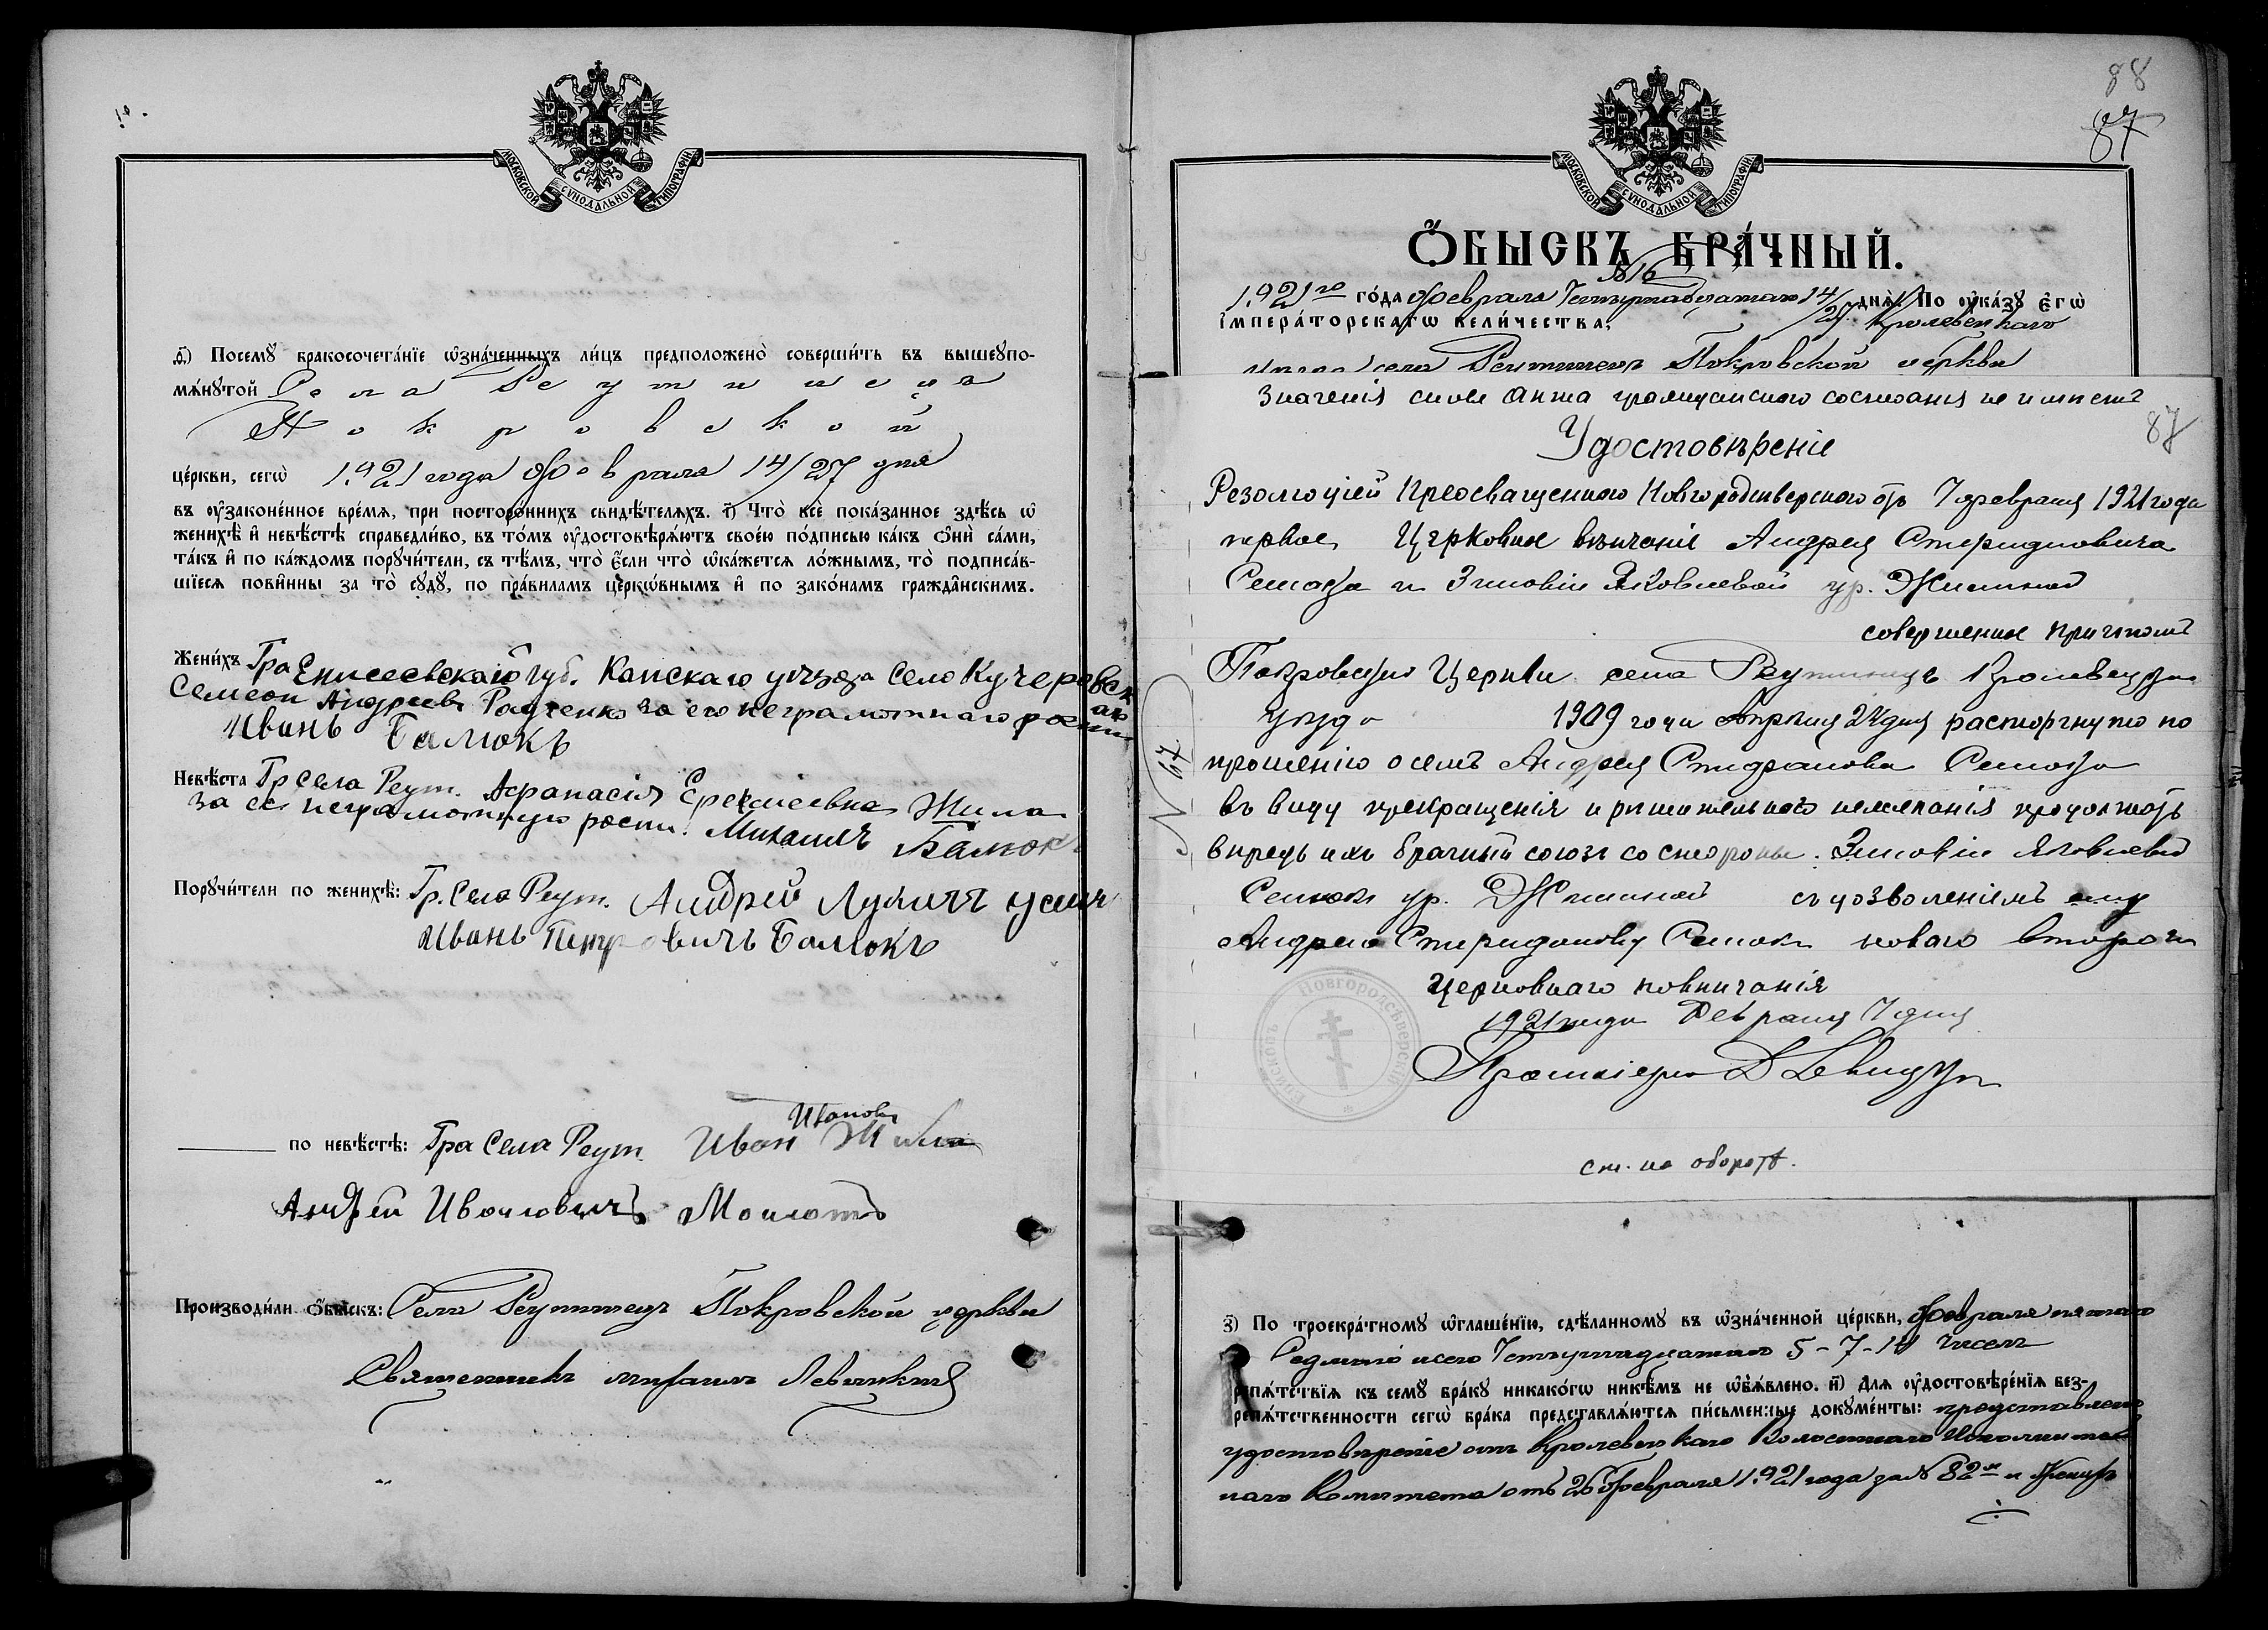 МОСКОВСКОЙ СѴНОДАЛЬНОЙ ТИПОГРАФІИ
Посемꙋ̀ бракосочета́нїе ѡ҆зна́ченныхъ ли́цъ предположено̀ соверши́ть въ вышеꙋпо-
мѧ́нꙋтой Села Реутинецъ
Покровской
це́ркви, сегѡ̀ 1921 года Февраля 14/27 дня
въ ᲂу҆законе́нное вре́мѧ, при посторо́ннихъ свидѣ́телѧхъ. Что̀ всѐ пока́занное здѣ́сь ѡ҆
женихѣ̀ и҆ невѣ́стѣ справедли́во, въ то́мъ ᲂу҆достовѣрѧ́ютъ свое́ю по́дписью ка́къ ѻ҆нѝ са́ми,
та́къ и҆ по ка́ждомъ порꙋчи́тели, съ тѣ́мъ, что̀ є҆́сли что̀ ѡ҆ка́жется ло́жнымъ, то̀ подписа́в-
шїесѧ пови́нны за то̀ сꙋдꙋ̀, по пра́виламъ церко́внымъ и҆ по зако́намъ гражда́нскимъ.
Жени́хъ Гра Енисеевскаго губ. Канскаго уѣзда Село Кучеровск
Семеон Андреевъ Радченко за его неграмотнаго
Иванъ Балюкъ
Невѣ́ста Гр Села Реут. Афанасія Ерексіевна Жила
за ее неграмотную роспи. Михаилъ Балюкъ
Порꙋчи́тели по женихѣ̀: Гр. Села Реут. Андрей Лукичъ
Иванъ Петровичъ Балюкъ
Иванов
по невѣ́стѣ: Гра Села Реут. Иван Жила
Андрей Ивановичъ
Производи́ли ѻ҆́быскъ: Села Реутинецъ Покровской церкви
Священникъ Михаилъ Левицкий
88
87
МОСКОВСКОЙ СѴНОДАЛЬНОЙ ТИПОГРАФІИ
Ѻ҆́БЫСКЪ БРА́ЧНЫЙ.
№ 16
1921го го́да Февраля Четырнадцатаго 14/27 днѧ̀. По ᲂу҆ка́зꙋ є҆гѡ̀
і҆мпера́торскагѡ вели́чества, Кролевецкаго
села Реутинецъ Покровской церкви
Значенія силы акта гражданскаго состоянія не имѣетъ
87
Удостовѣреніе
Резолюціей Преосвященного Новгородсѣверского отъ 7 февраля 1921 года
первое Церковное вѣнчаніе Андрея Спиридоновича
Семока и Зиновіи Яковлевой ур. Жилиной
совершенное причтомъ
Покровской Церкви села Реутинецъ Кролевецкаго
уѣзда 1909 года Апрѣля 24 дня расторгнуто по
прошенію о семъ Андрея Спиридонова Семока
въ виду прекращенія и рѣшительнаго нежеланія продолжать
впредь ихъ брачный союзъ со стороны Зиновіи Яковлевой
Семока ур. Жилиной съ дозволеніемъ ему
Андрею Спиридонову Семока новаго второго
Церковнаго повѣнчанія
1921 года Февраля 7 дня
Протоіерей
№ 64
Епископъ Новгородсѣверскій
см. на оборотѣ.
з) По троекра́тномꙋ ѡ҆глаше́нїю, сдѣ́ланномꙋ въ ѡ҆зна́ченной це́ркви, Февраля пятаго
Седмаго и сего Четырнадцатаго 5-7-14 чиселъ
препѧ́тствїѧ къ семꙋ̀ бра́кꙋ никако́гѡ никѣ́мъ не ѡ҆б̾ѧ́влено. и҃) Для ᲂу҆достовѣре́нїѧ без-
препѧ́тственности сегѡ̀ бра́ка представлѧ́ютсѧ пи́сьменные докꙋме́нты: представлено
удостовѣреніе отъ Кролевецкаго Волостнаго Исполнитель
наго Комитета отъ 26 Февраля 1921 года за № 82м и